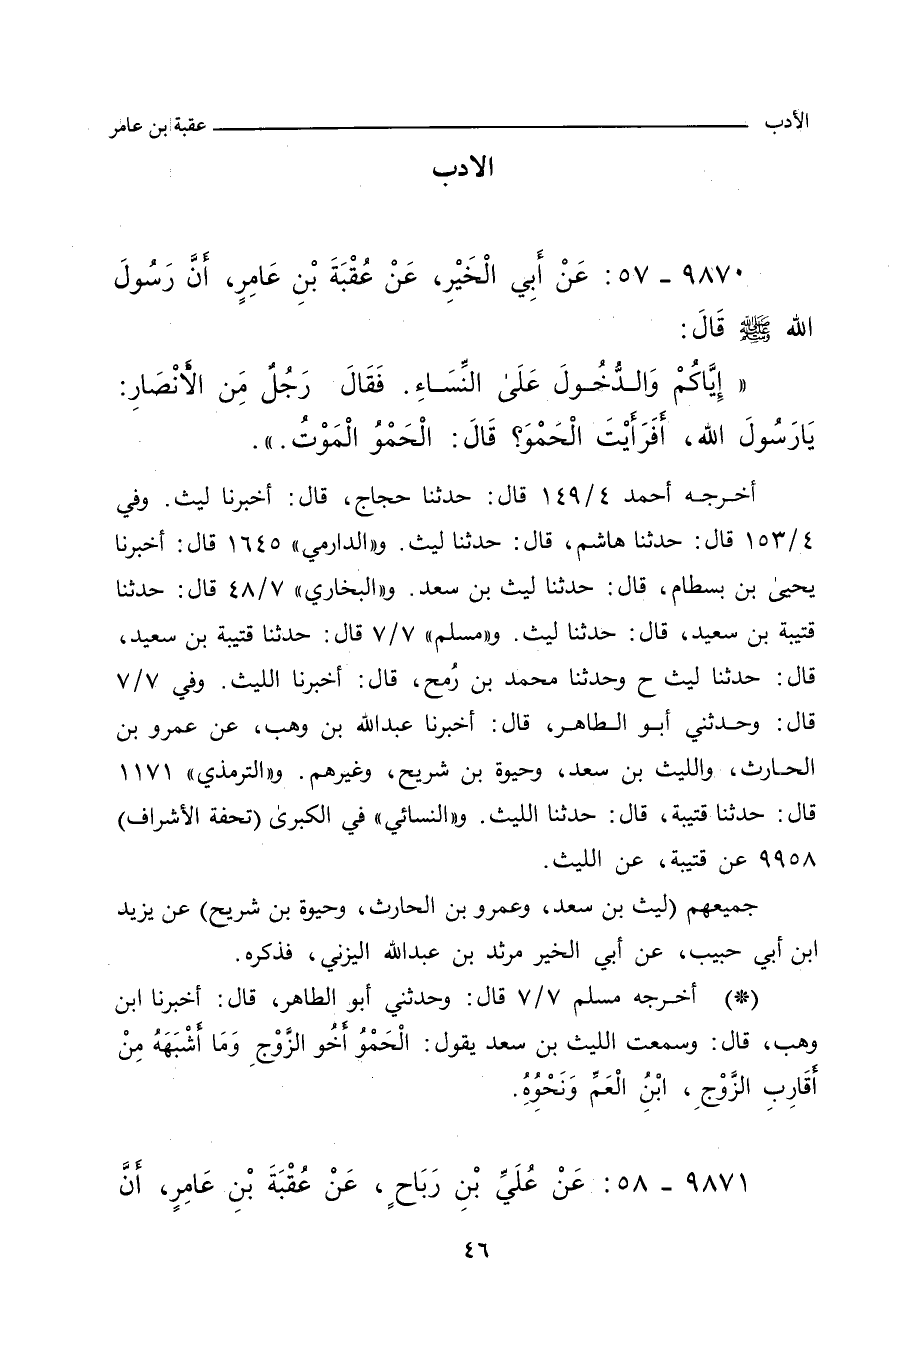 الأدب ــــــــــ عقبة ابن عامر
الادب
٩٨٧٠ - ٥٧: عَنْ أَبِي الْخَيْرِ، عَنْ عُقْبَةَ بْنِ عَامِرٍ، أَنَّ رَسُولَ
الله ﷺ قَالَ:
« إِيَّاكُمْ وَالدُّخُولَ عَلَىٰ النِّسَاءِ. فَقَالَ رَجُلٌ مِّن الأَنْصَارِ:
يَارَسُولَ الله، أَفَرَأَيْتَ الْحَمْوَ؟ قَالَ: الْحَمْوُ الْمَوْتُ.».
أخرجه أحمد ١٤٩/٤ قال: حدثنا حجاج، قال: أخبرنا ليث. وفي
١٥٣/٤ قال: حدثنا هاشم، قال: حدثنا ليث. و«الدارمي» ١٦٤٥ قال: أخبرنا
يحيىٰ بن بسطام، قال: حدثنا ليث بن سعد. و«البخاري» ٤٨/٧ قال: حدثنا
قتيبة بن سعيد، قال: حدثنا ليث. و«مسلم» ٧/٧ قال: حدثنا قتيبة بن سعيد،
قال: حدثنا ليث ح وحدثنا محمد بن رُمح، قال: أخبرنا الليث. وفي ٧/٧
قال: وحدثني أبو الطاهر، قال: أخبرنا عبدالله بن وهب، عن عمرو بن
الحارث، والليث بن سعد، وحيوة بن شريح، وغيرهم. و«الترمذي» ١١٧١
قال: حدثنا قتيبة، قال: حدثنا الليث. و«النسائي» في الكبرىٰ (تحفة الأشراف)
٩٩٥٨ عن قتيبة، عن الليث.
جميعهم (ليث بن سعد، وعمرو بن الحارث، وحيوة بن شريح) عن يزيد
ابن أبي حبيب، عن أبي الخير مرثد بن عبدالله اليزني، فذكره.
(*) أخرجه مسلم ٧/٧ قال: وحدثني أبو الطاهر، قال: أخبرنا ابن
وهب، قال: وسمعت الليث بن سعد يقول: الْحَمْوُ أَخُو الزَّوْجِ وَمَا أَشْبَهَهُ مِنْ
أَقَارِبِ الزَّوْجِ، ابْنُ الْعَمِّ وَنَحْوُهُ.
٩٨٧١ - ٥٨: عَنْ عُلَيِّ بْنِ رَبَاحٍ، عَنْ عُقْبَةَ بْنِ عَامِرٍ، أَنَّ
٤٦